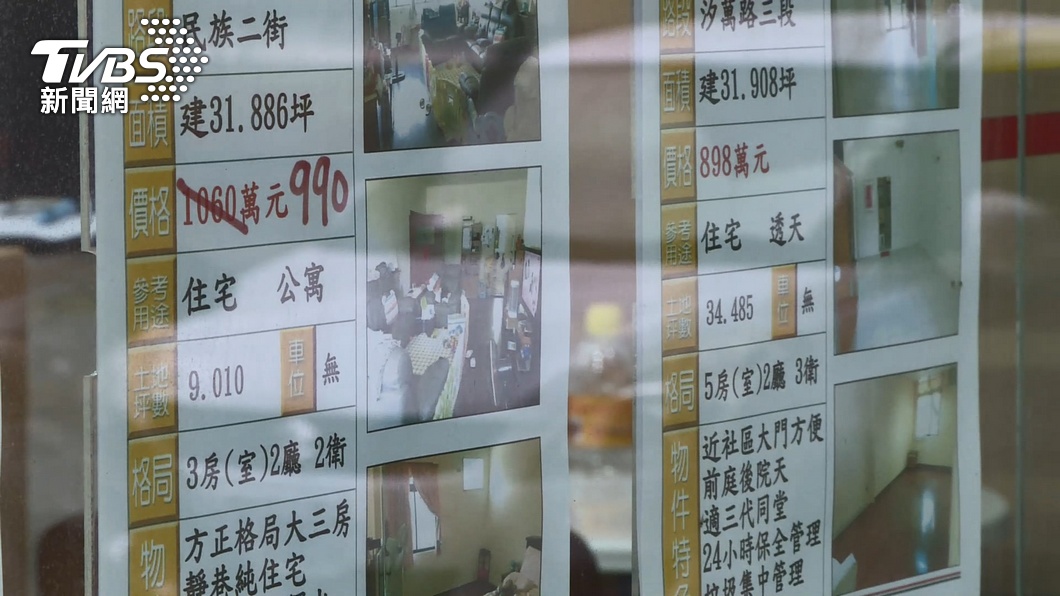 TVBS
新聞網
路段
民族二街
面積
建31.886坪
價格
1060萬元 990
參考用途
住宅 公寓
土地坪數
9.010
車位
無
格局
3房(室)2廳 2衛
物
方正格局大三房
靜巷純住宅
路段
汐萬路三段
面積
建31.908坪
價格
898萬元
參考用途
住宅 透天
土地坪數
34.485
車位
無
格局
5房(室)2廳 3衛
物件特色
近社區大門方便
前庭後院天
適三代同堂
24小時保全管理
垃圾集中管理